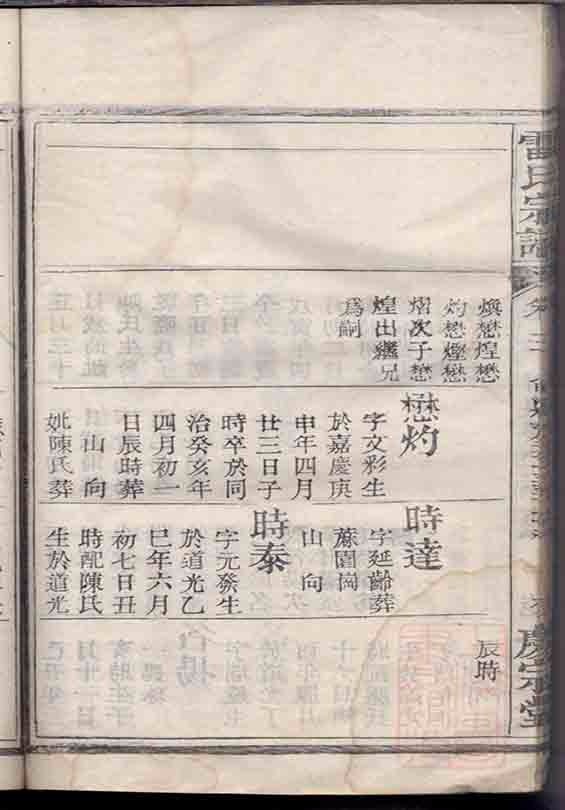 雷氏宗譜
煥懋煌懋
灼懋煙懋
熠次子懋
煌出繼兄
為嗣
懋灼
字文彩生
於嘉慶庚
申年四月
廿三日子
時卒於同
治癸亥年
四月初一
日辰時葬
山向
妣陳氏葬
時達
字延齡葬
蔴園崗
山向
時泰
字元發生
於道光乙
巳年六月
初七日丑
時配陳氏
生於道光
辰時